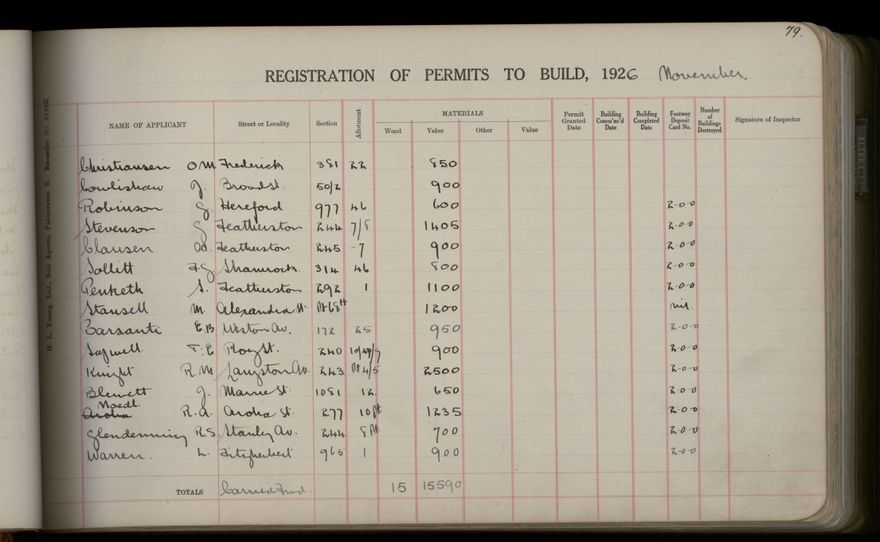 79.
REGISTRATION OF PERMITS TO BUILD, 1926 November.
NAME OF APPLICANT Street or Locality Section Allotment MATERIALS Wood Value Other Value Permit Granted Date Building Comm'nc'd Date Building Completed Date Footway Deposit Card No. Number of Buildings Destroyed Signature of Inspector
Christiansen O M Frederick 381 22 850
Cowlishaw J. Broad St. 50/2 900
Robinson G. Hereford 977 46 600 2-0-0
Stevenson G Featherston 244 7/8 1405 2-0-0
Clausen Featherston 245 7 900 2-0-0
Tollitt F G Shamrock 314 46 800 2-0-0
Penketh S. Featherston 292 1 1100 2-0-0
Stansell M. Alexandra St 1200 nil.
Barsanti E B Weston Av. 172 25 950 2-0-0
Roy St. 240 900 2-0-0
Knight R. M Langston Av. 243 Pt 4/5 2500 2-0-0
Blewett J. Marne St. 1081 12 650 2-0-0
R. A. Aroha St. 277 10 Pt 1235 2-0-0
Glendenning R S. Stanley Av. 244 8 Pt 700 2-0-0
Warren. L. Fitzherbert 965 1 900 2-0-0
TOTALS Carried Fwd. 15 15590